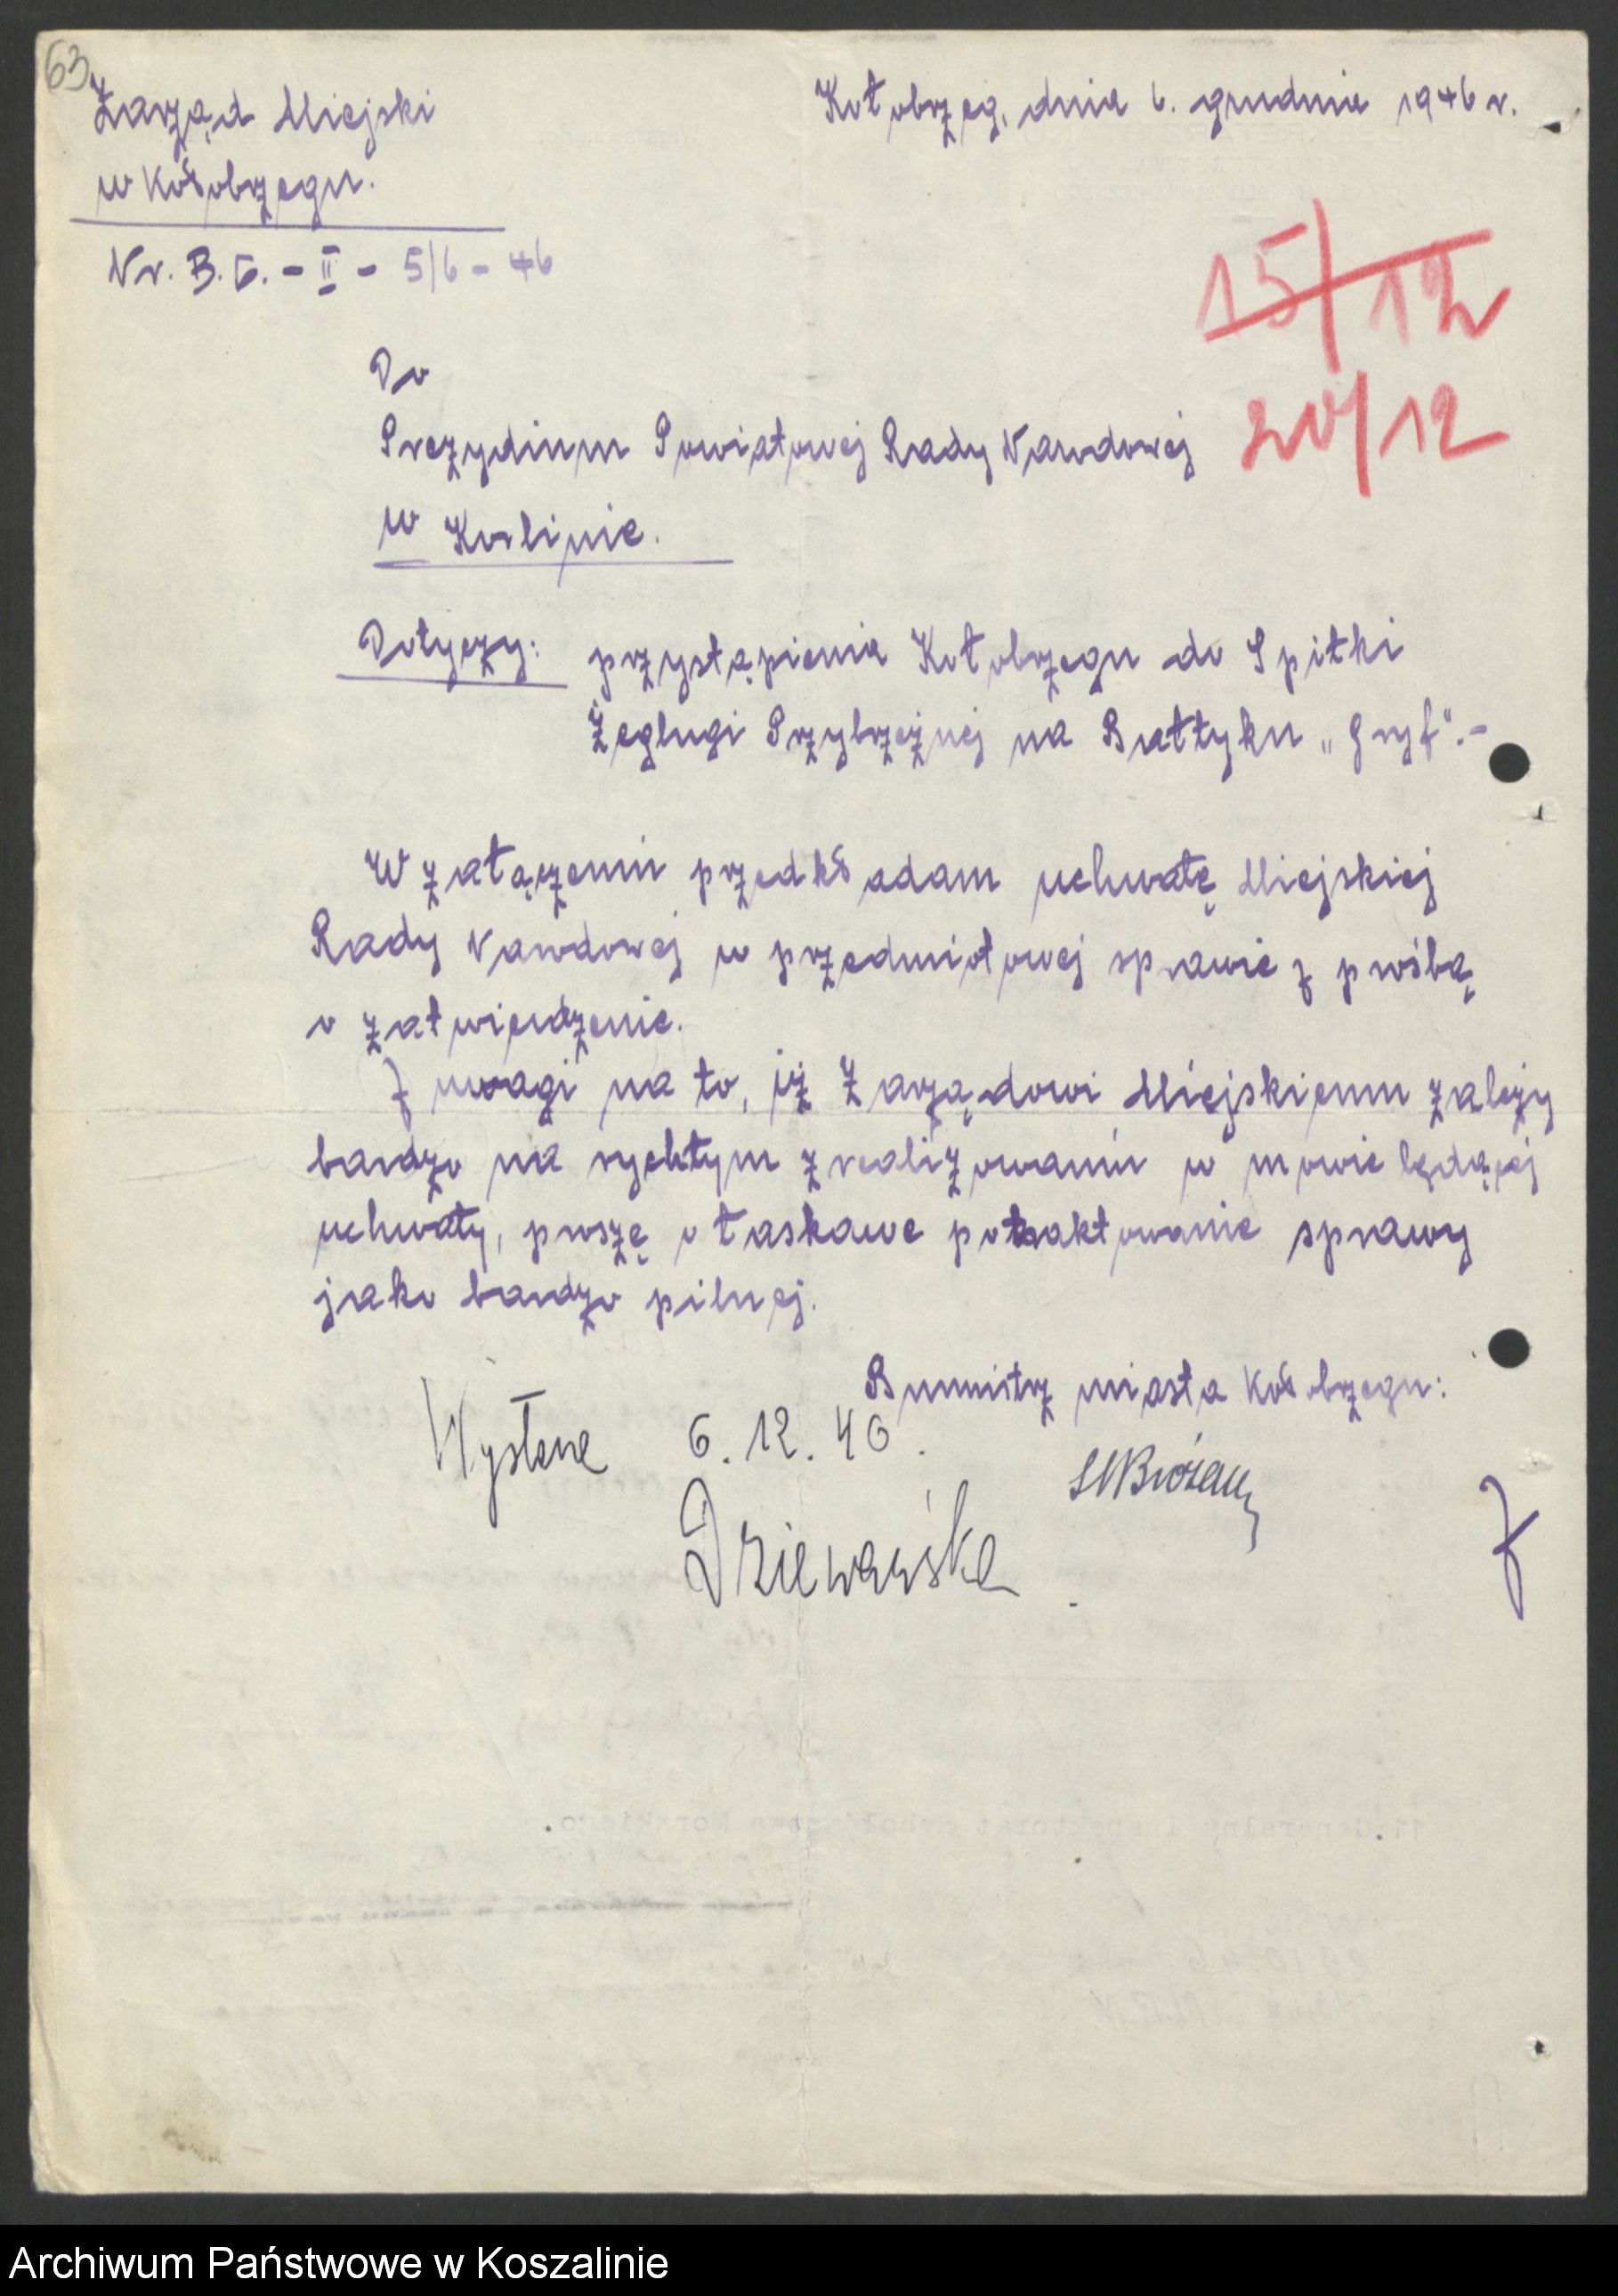 63
Zarząd Miejski
w Kołobrzegu.
Kołobrzeg, dnia 6. grudnia 1946 r.
Nr. B.G. - II - 5/6 - 46
15/12
20/12
Do
Prezydium Powiatowej Rady Narodowej
w Korlinie.
Dotyczy: przystąpienia Kołobrzegu do Spółki
Żeglugi Przybrzeżnej na Bałtyku „Gryf".-
W załączeniu przedkładam uchwałę Miejskiej
Rady Narodowej w przedmiotowej sprawie z prośbą
o zatwierdzenie.
Z uwagi na to, iż Zarządowi Miejskiemu zależy
bardzo na rychłym zrealizowaniu w mowie będącej
uchwały, proszę o łaskawe potraktowanie sprawy
jako bardzo pilnej.
Burmistrz miasta Kołobrzegu:
Wysłane 6.12.46.
Archiwum Państwowe w Koszalinie